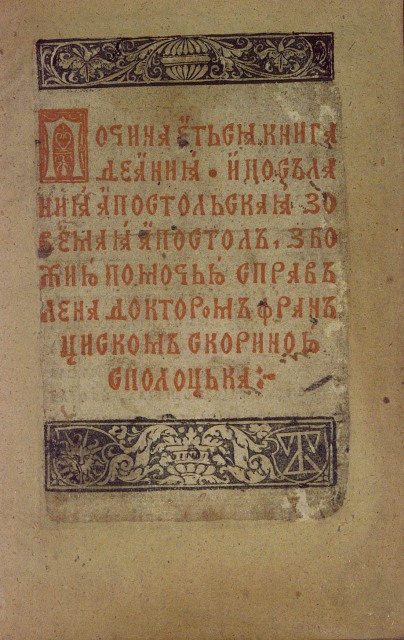 Починаеться книга
деяния и посъла
ния апостольская зо
вемая апостолъ, з бо
жию помочью справъ
лена доктором франъ
циском скориною
с полоцька